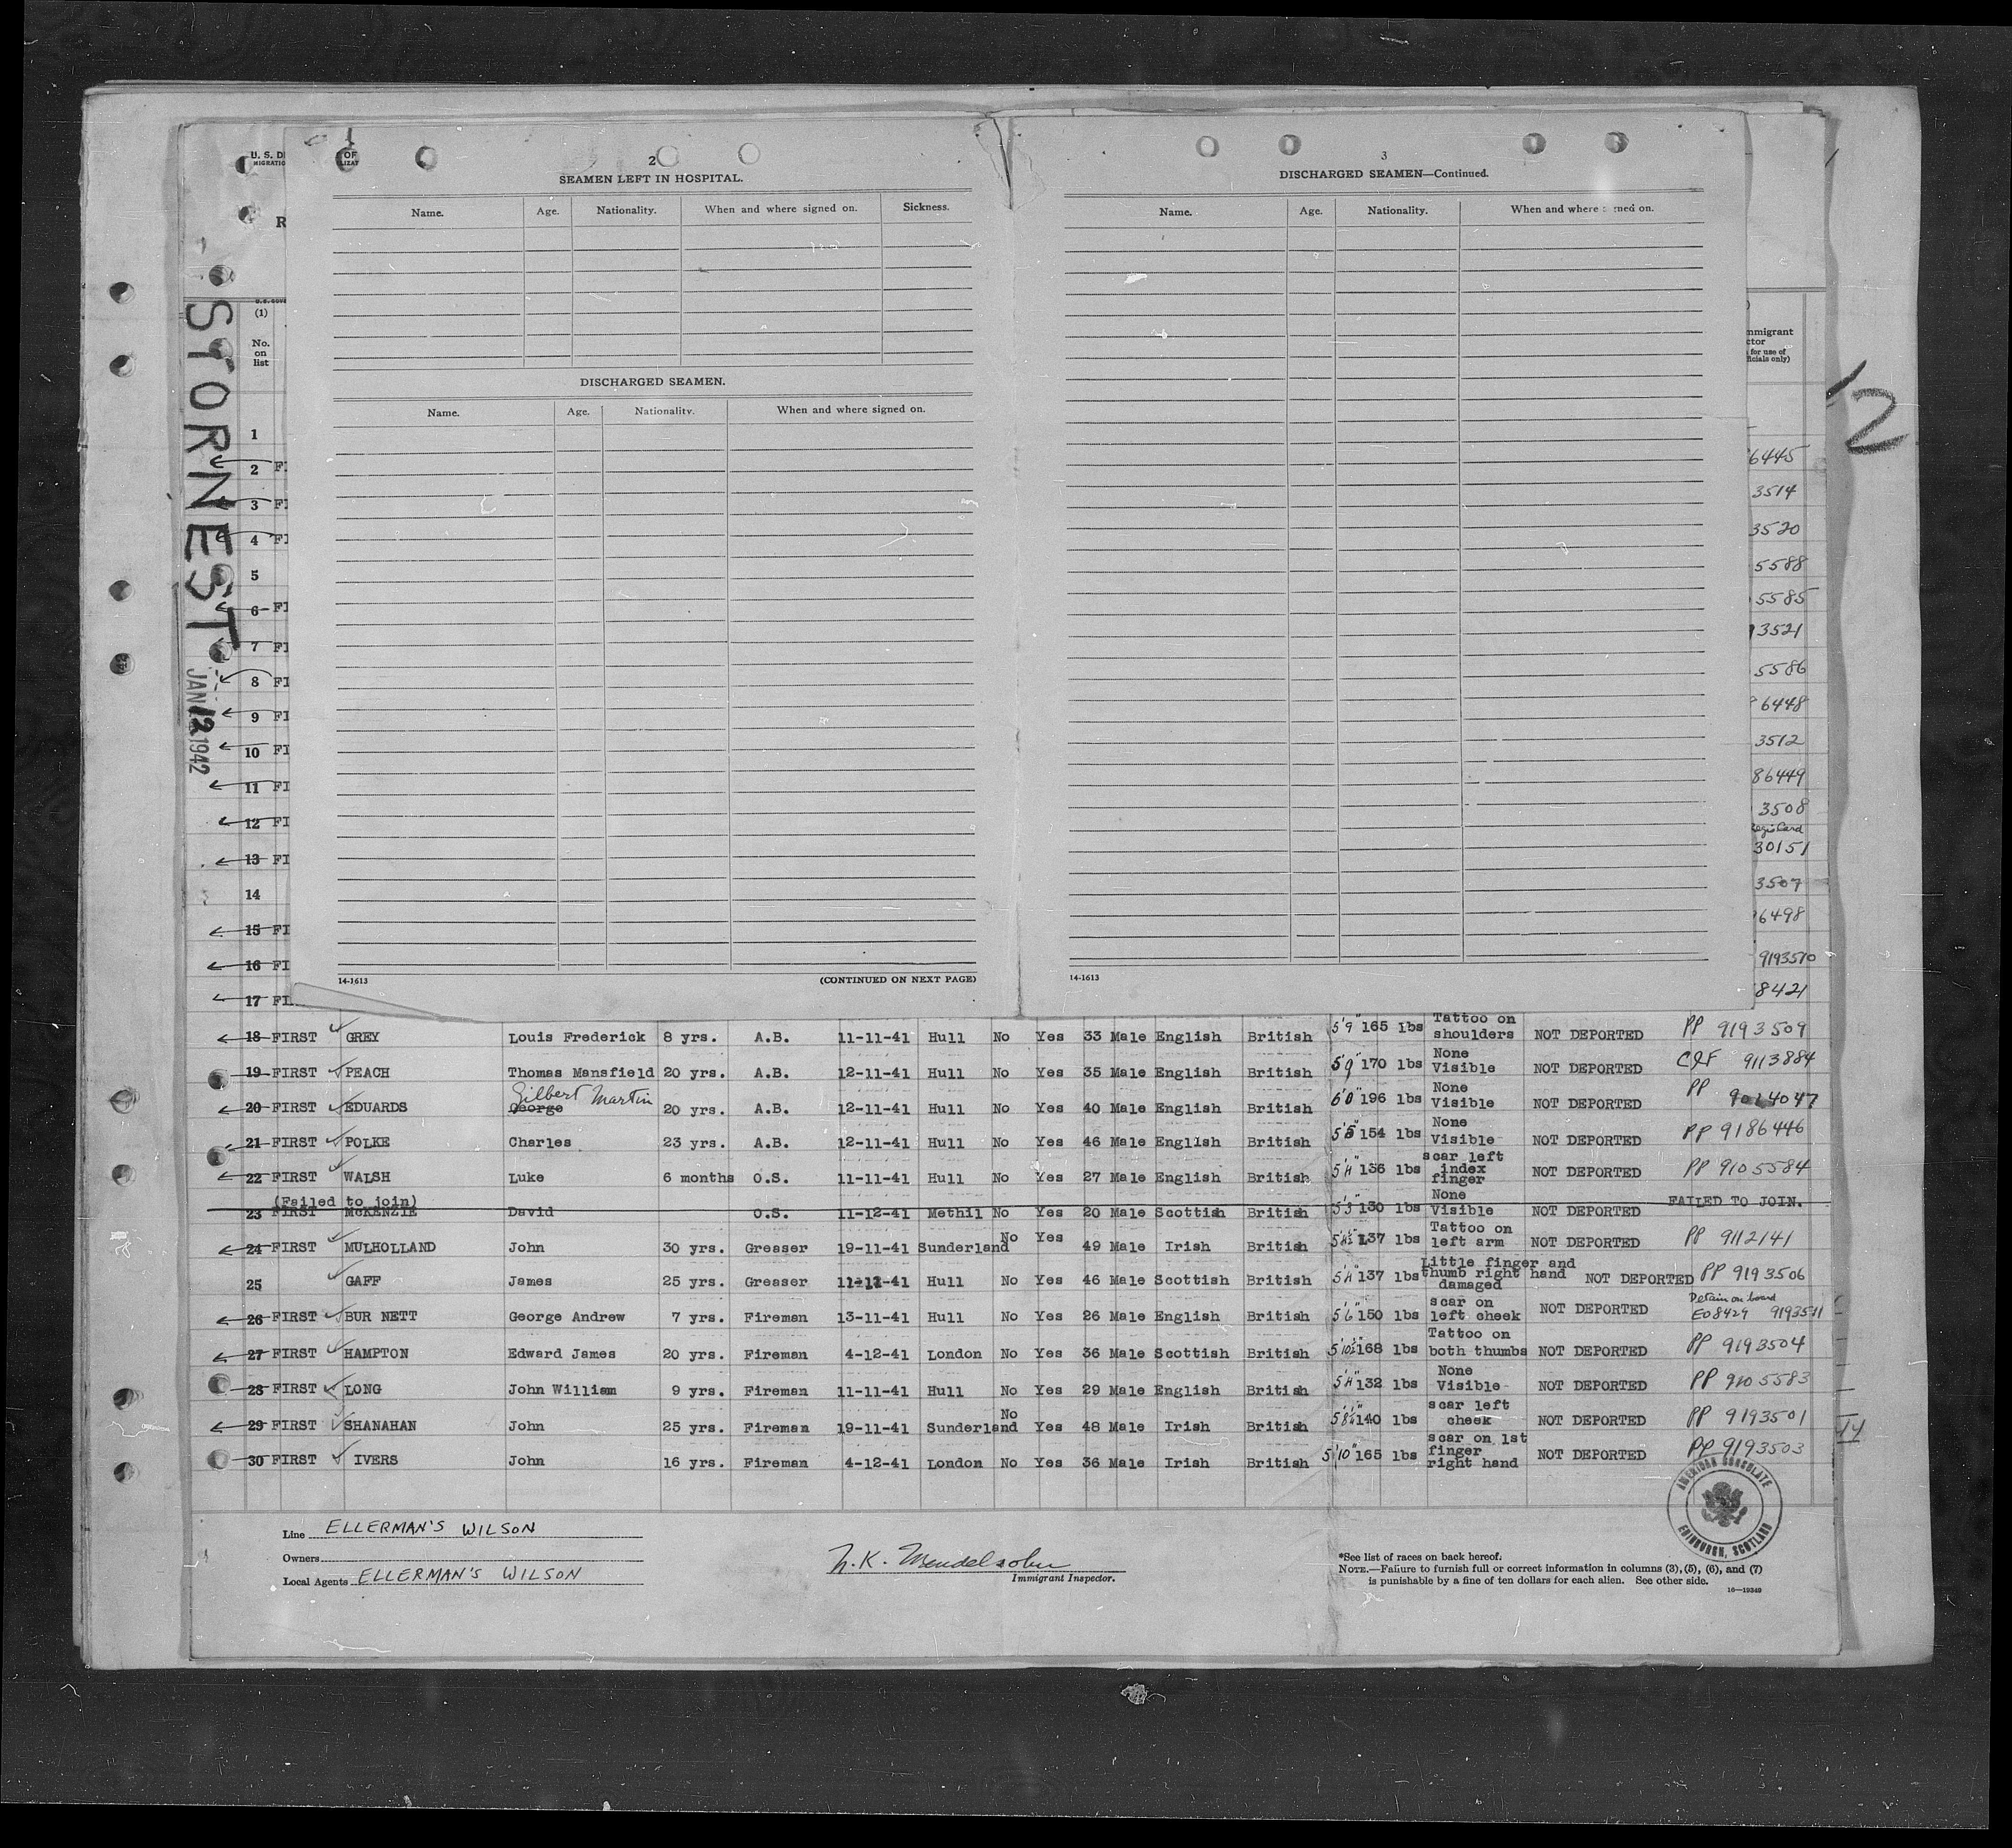 U. S. D
OF
2
SEAMEN LEFT IN HOSPITAL.
Name. Age. Nationality. When and where signed on. Sickness.
DISCHARGED SEAMEN.
Name. Age. Nationality. When and where signed on.
14-1613 (CONTINUED ON NEXT PAGE)
3
DISCHARGED SEAMEN—Continued.
Name. Age. Nationality. When and where signed on.
14-1613
STORNEST
JAN 12 1942
12
(1)
No.
on
list
1
2 FI
3 FI
4 FI
5
6 FI
7 FI
8 FI
9 FI
10 FI
11 FI
12 FI
13 FI
14
15 FI
16 FI
17 FI
nmigrant
ctor
for use of
ficials only)
6445
3514
3520
5588
5585
3521
5586
6448
3512
86449
3508
30151
3507
6498
9193510
8421
18 FIRST GREY Louis Frederick 8 yrs. A.B. 11-11-41 Hull No Yes 33 Male English British 5'9" 165 lbs Tattoo on shoulders NOT DEPORTED PP 9193509
19 FIRST PEACH Thomas Mansfield 20 yrs. A.B. 12-11-41 Hull No Yes 35 Male English British 5'9" 170 lbs None Visible NOT DEPORTED 9113884
20 FIRST EDUARDS George Gilbert Martin 20 yrs. A.B. 12-11-41 Hull No Yes 40 Male English British 6'0" 196 lbs None Visible NOT DEPORTED PP 9024047
21 FIRST POLKE Charles 23 yrs. A.B. 12-11-41 Hull No Yes 46 Male English British 154 lbs None Visible NOT DEPORTED PP 9186446
22 FIRST WALSH Luke 6 months O.S. 11-11-41 Hull No Yes 27 Male English British 136 lbs scar left index finger NOT DEPORTED PP 9105584
(Failed to join)
23 FIRST McKENZIE David O.S. 11-12-41 Methil No Yes 20 Male Scottish British 5'3" 130 lbs None Visible NOT DEPORTED FAILED TO JOIN.
24 FIRST MULHOLLAND John 30 yrs. Greaser 19-11-41 Sunderland No Yes 49 Male Irish British 137 lbs Tattoo on left arm NOT DEPORTED PP 9112141
25 GAFF James 25 yrs. Greaser 11-12-41 Hull No Yes 46 Male Scottish British 137 lbs Little finger and thumb right hand damaged NOT DEPORTED PP 9193506
26 FIRST BUR NETT George Andrew 7 yrs. Fireman 13-11-41 Hull No Yes 26 Male English British 5'6" 150 lbs scar on left cheek NOT DEPORTED Detain on board E08429 9193511
27 FIRST HAMPTON Edward James 20 yrs. Fireman 4-12-41 London No Yes 36 Male Scottish British 5'10½" 168 lbs Tattoo on both thumbs NOT DEPORTED PP 9193504
28 FIRST LONG John William 9 yrs. Fireman 11-11-41 Hull No Yes 29 Male English British 132 lbs None Visible NOT DEPORTED PP 9105583
29 FIRST SHANAHAN John 25 yrs. Fireman 19-11-41 Sunderland No Yes 48 Male Irish British 140 lbs scar left cheek NOT DEPORTED PP 9193501
30 FIRST IVERS John 16 yrs. Fireman 4-12-41 London No Yes 36 Male Irish British 5'10" 165 lbs scar on 1st finger right hand NOT DEPORTED PP 9193503
Line ELLERMAN'S WILSON
Owners
Local Agents ELLERMAN'S WILSON
N.K. Mendelsohn
Immigrant Inspector.
AMERICAN CONSULATE
EDINBURGH, SCOTLAND
*See list of races on back hereof.
NOTE.—Failure to furnish full or correct information in columns (3), (5), (6), and (7)
is punishable by a fine of ten dollars for each alien. See other side.
16—19349